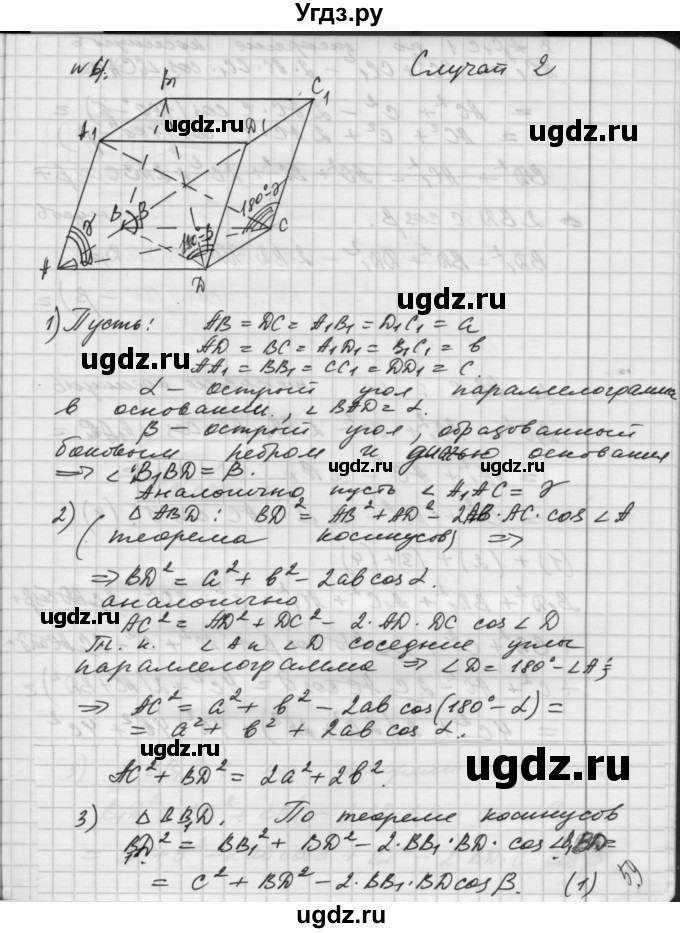 Угдз.ру
№61. Случай 2
B1 C1
A1 D1
180°-γ
γ B β C
180°-β
A D
1) Пусть: AB = DC = A1B1 = D1C1 = a
AD = BC = A1D1 = B1C1 = b
AA1 = BB1 = CC1 = DD1 = c.
α – острый угол параллелограмма
в основании, ∠BAD = α.
β – острый угол, образованный
боковым ребром и диагональю основания
⇒ ∠B1BD = β.
Аналогично пусть ∠A1AC = γ
2) △ABD: BD² = AB² + AD² - 2AB·AC·cos∠A
(теорема косинусов) ⇒
⇒ BD² = a² + b² - 2ab cos α.
аналогично
AC² = AD² + DC² - 2·AD·DC cos∠D
Т.к. ∠A и ∠D соседние углы
параллелограмма ⇒ ∠D = 180° - ∠A;
⇒ AC² = a² + b² - 2ab cos(180° - α) =
= a² + b² + 2ab cos α.
AC² + BD² = 2a² + 2b².
3) △BB1D. По теореме косинусов
B1D² = BB1² + BD² - 2·BB1·BD·cos∠B1BD =
= c² + BD² - 2·BB1·BD cos β. (1)
59
ugdz.ru
ugdz.ru
ugdz.ru
ugdz.ru
ugdz.ru
ugdz.ru
ugdz.ru
ugdz.ru
ugdz.ru
ugdz.ru
ugdz.ru
ugdz.ru